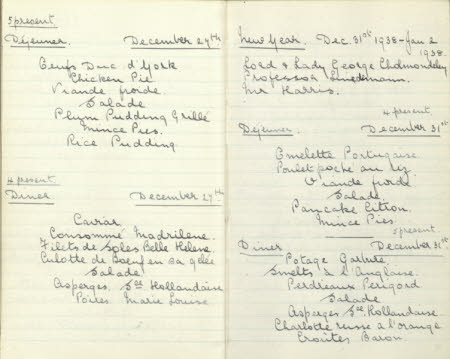 5 present
Déjeuner. December 27th
Oeufs Duc d'York
Chicken Pie
Viande froide.
Salade
Plum Pudding Grillé
Mince Pies.
Rice Pudding.
4 present
Diner December 27th
Caviar.
Consommé Madrilene.
Filets de Soles Belle Helene.
Culotte de Boeuf en sa gelée
Salade
Asperges. Sce Hollandaise
Poires Marie Louise
New Year. Dec. 31st 1938 - Jan 2
1938.
Lord & Lady George Cholmondeley
Professor Lindemann.
Mr Harris.
4 present
Déjeuner. December 31st
Omelette Portugaise
Poulet poché au riz.
Viande froide
Salade
Pancake Citron.
Mince Pies.
5 present
Diner December 31st
Potage
Smelts à l'Anglaise.
Perdreaux Perigord
Salade
Asperges Sce Hollandaise
Charlotte russe à l'orange
Croûtes Baron